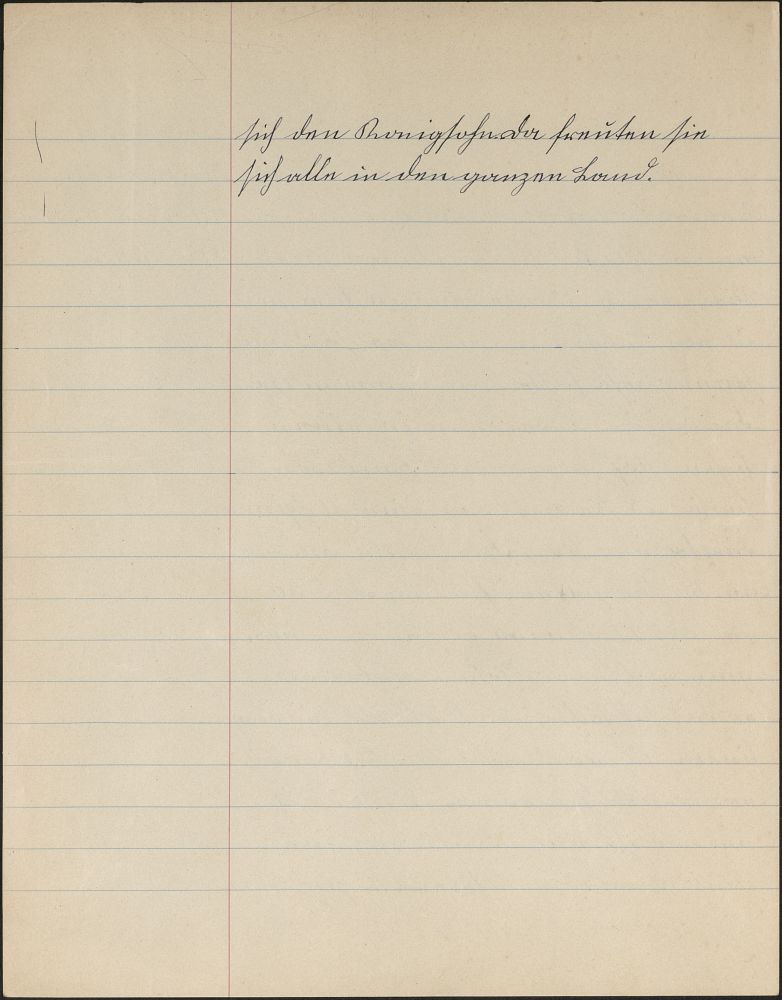 sich den Konigsohn. da freuten sie
sich alle in den ganzen Land.